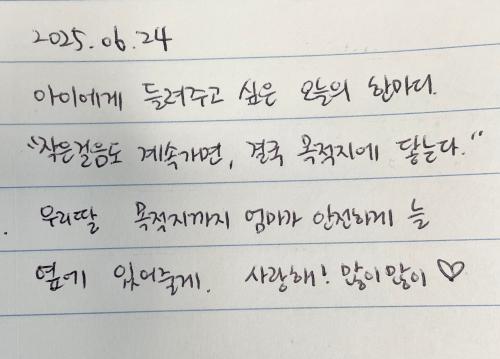 2025.06.24
아이에게 들려주고 싶은 오늘의 한마디.
"작은걸음도 계속가면, 결국 목적지에 닿는다."
우리딸 목적지까지 엄마가 안전하게 늘
옆에 있어줄게. 사랑해! 많이많이 ♡